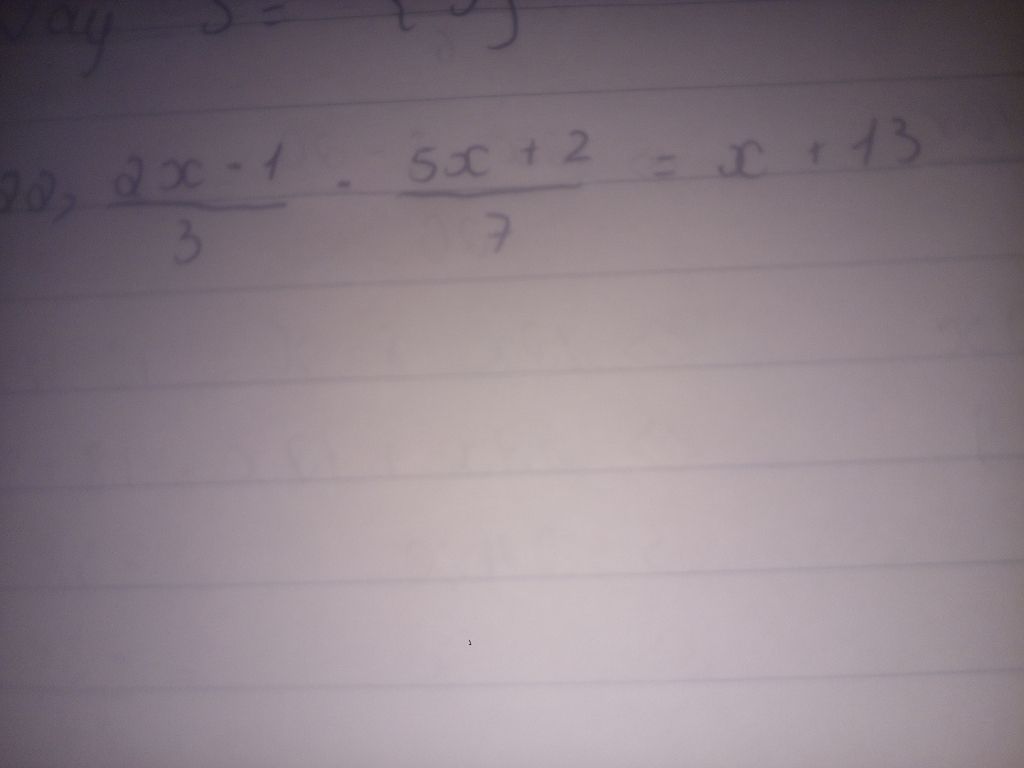 Vay S = {
22, (2x - 1)/3 - (5x + 2)/7 = x + 13